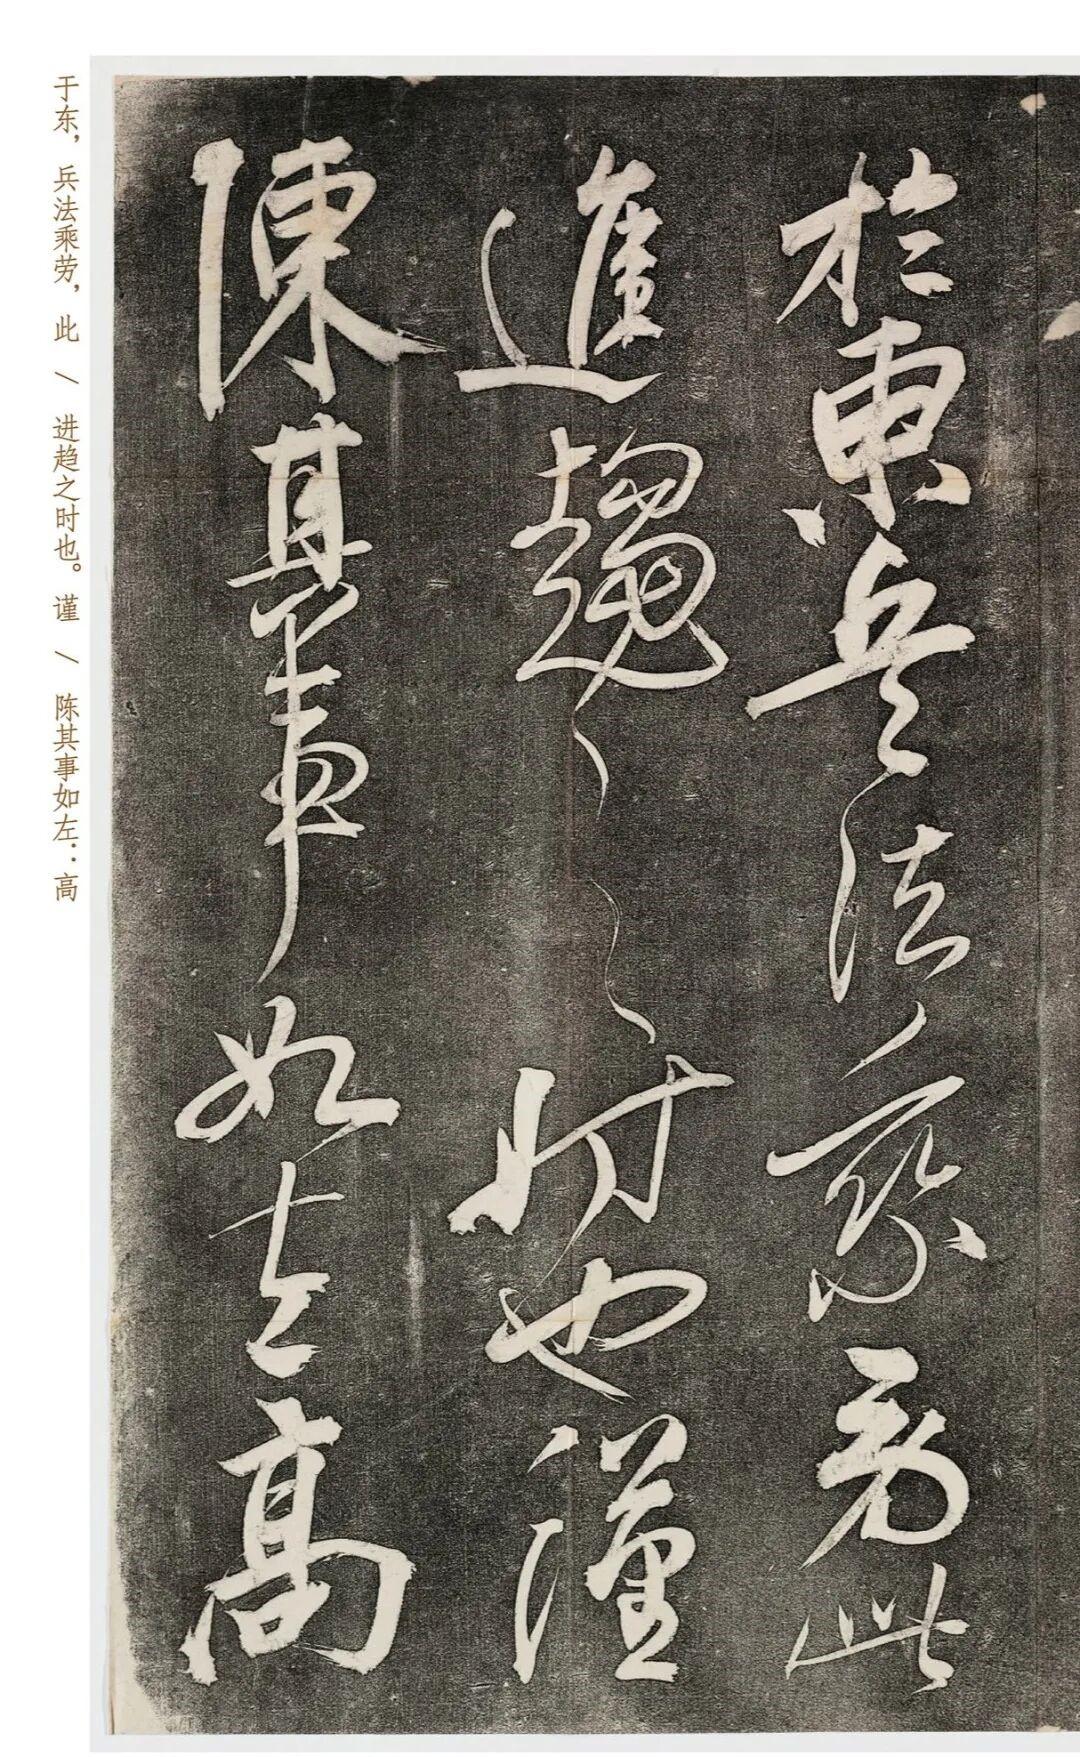 於東兵法乘勞此
進趨之時也謹
陳其事如左高
于东，兵法乘劳，此 / 进趋之时也。谨 / 陈其事如左：高